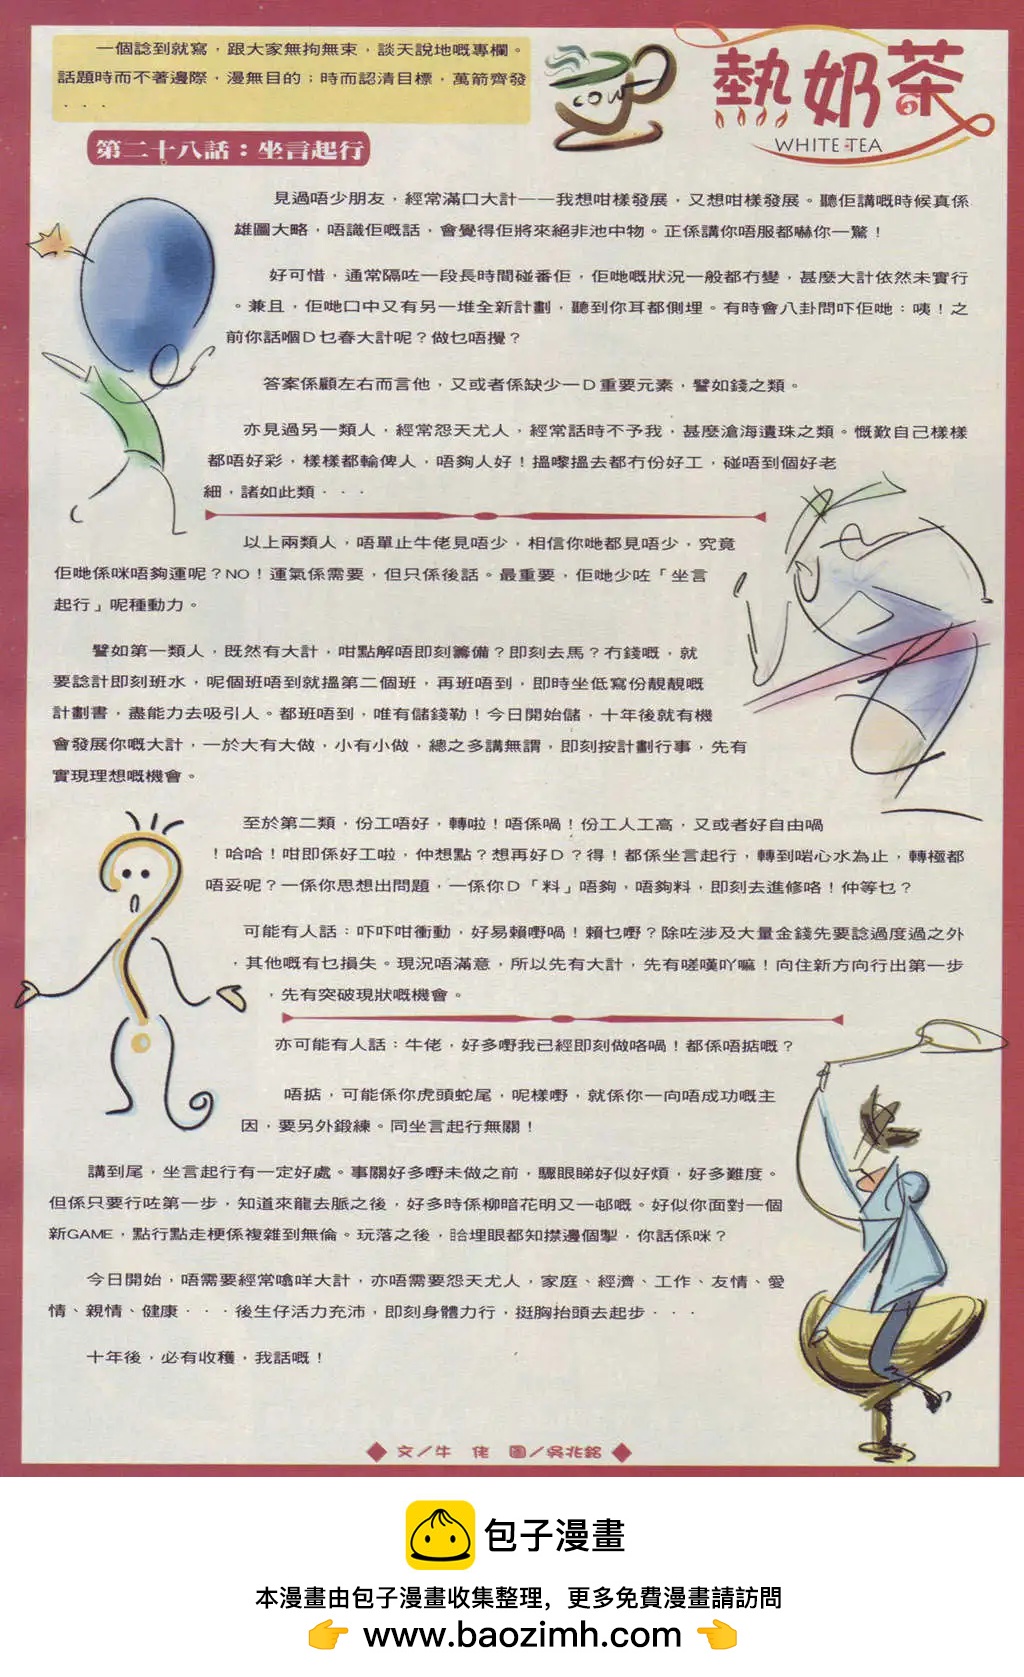 一個諗到就寫，跟大家無拘無束，談天說地嘅專欄。
話題時而不著邊際，漫無目的；時而認清目標，萬箭齊發
．．．
COW
熱奶茶
WHITE TEA
第二十八話：坐言起行
見過唔少朋友，經常滿口大計——我想咁樣發展，又想咁樣發展。聽佢講嘅時候真係
雄圖大略，唔識佢嘅話，會覺得佢將來絕非池中物。正係講你唔服都嚇你一驚！
好可惜，通常隔咗一段長時間碰番佢，佢哋嘅狀況一般都冇變，甚麼大計依然未實行
。兼且，佢哋口中又有另一堆全新計劃，聽到你耳都側埋。有時會八卦問吓佢哋：咦！之
前你話嗰Ｄ乜春大計呢？做乜唔攪？
答案係顧左右而言他，又或者係缺少一Ｄ重要元素，譬如錢之類。
亦見過另一類人，經常怨天尤人，經常話時不予我，甚麼滄海遺珠之類。慨歎自己樣樣
都唔好彩，樣樣都輸俾人，唔夠人好！搵嚟搵去都冇份好工，碰唔到個好老
細，諸如此類．．．
以上兩類人，唔單止牛佬見唔少，相信你哋都見唔少，究竟
佢哋係咪唔夠運呢？NO！運氣係需要，但只係後話。最重要，佢哋少咗「坐言
起行」呢種動力。
譬如第一類人，既然有大計，咁點解唔即刻籌備？即刻去馬？冇錢嘅，就
要諗計即刻班水，呢個班唔到就搵第二個班，再班唔到，即時坐低寫份靚靚嘅
計劃書，盡能力去吸引人。都班唔到，唯有儲錢勒！今日開始儲，十年後就有機
會發展你嘅大計，一於大有大做，小有小做，總之多講無謂，即刻按計劃行事，先有
實現理想嘅機會。
至於第二類，份工唔好，轉啦！唔係喎！份工人工高，又或者好自由喎
！哈哈！咁即係好工啦，仲想點？想再好Ｄ？得！都係坐言起行，轉到啱心水為止，轉極都
唔妥呢？一係你思想出問題，一係你Ｄ「料」唔夠，唔夠料，即刻去進修咯！仲等乜？
可能有人話：吓吓咁衝動，好易賴嘢喎！賴乜嘢？除咗涉及大量金錢先要諗過度過之外
，其他嘅有乜損失。現況唔滿意，所以先有大計，先有嗟嘆吖嘛！向住新方向行出第一步
，先有突破現狀嘅機會。
亦可能有人話：牛佬，好多嘢我已經即刻做咯喎！都係唔掂嘅？
唔掂，可能係你虎頭蛇尾，呢樣嘢，就係你一向唔成功嘅主
因，要另外鍛練。同坐言起行無關！
講到尾，坐言起行有一定好處。事關好多嘢未做之前，驟眼睇好似好煩，好多難度。
但係只要行咗第一步，知道來龍去脈之後，好多時係柳暗花明又一邨嘅。好似你面對一個
新GAME，點行點走梗係複雜到無倫。玩落之後，眙埋眼都知㩒邊個掣，你話係咪？
今日開始，唔需要經常嗆咩大計，亦唔需要怨天尤人，家庭、經濟、工作、友情、愛
情、親情、健康．．．後生仔活力充沛，即刻身體力行，挺胸抬頭去起步．．．
十年後，必有收穫，我話嘅！
◆ 文／牛　佬　圖／吳兆銘 ◆
包子漫畫
本漫畫由包子漫畫收集整理，更多免費漫畫請訪問
👉 www.baozimh.com 👈